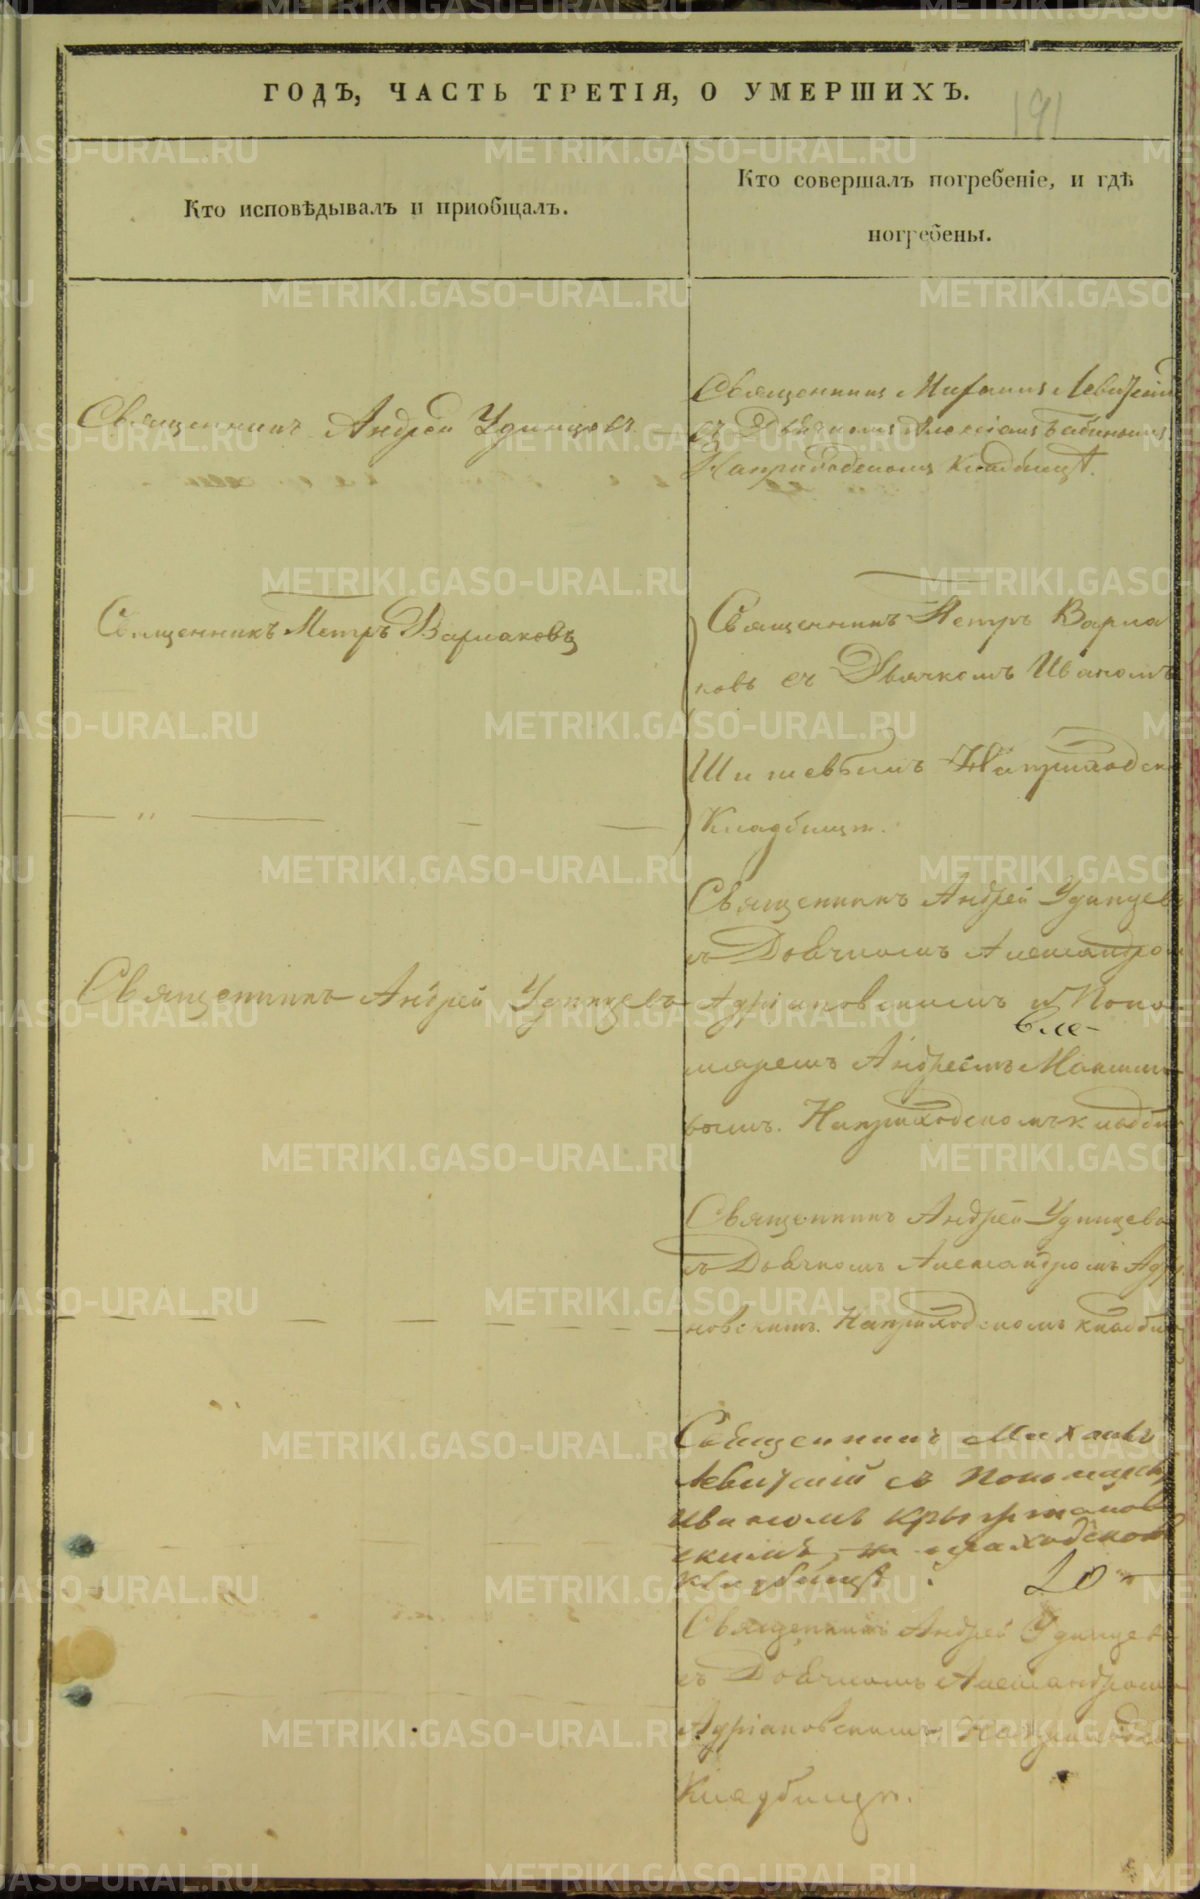 ГОДЪ, ЧАСТЬ ТРЕТІЯ, О УМЕРШИХЪ.
191
Кто исповѣдывалъ и пріобщалъ.
Кто совершалъ погребеніе, и гдѣ
погребены.
Священникъ Андрей Удинцевъ
Священникъ Михаилъ Левитскій
съ Дьячкомъ Алексіемъ Бабиновымъ
На приходскомъ кладбищѣ.
Священникъ Петръ Варлаковъ
Священникъ Петръ Варла
ковъ съ Дьячкомъ Иваномъ
Шишевымъ На приходск
Кладбищѣ.
Священникъ Андрей Удинцевъ
Священникъ Андрей Удинцевъ
съ Дьячкомъ Александром
Адріановскимъ и Поно
маремъ Андреемъ
вымъ. На приходскомъ кладби
Священникъ Андрей Удинцевъ
съ Дьячкомъ Александромъ Адрі
новскимъ. На приходскомъ кладби
Священникъ Михаилъ
Левитскій съ Пономаремъ
Иваномъ
скимъ, на приходскомъ
кладбищѣ.
Священникъ Андрей Удинцевъ
съ Дьячкомъ Александромъ
Адріановскимъ На приходском
Кладбищѣ.
METRIKI.GASO-URAL.RU